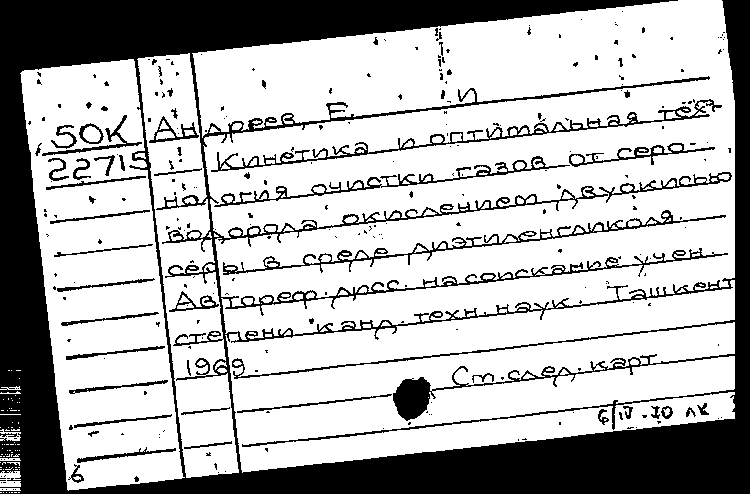 И
50К Андреев, Е.
22715 Кинетика и оптимальная тех-
нология очистки газов от серо-
водорода окислением двуокисью
серы в среде диэтиленгликоля.
Автореф. дисс. на соискание учен.
степени канд. техн. наук. Ташкент
1969.
См. след. карт.
6/IV-70 лк
6